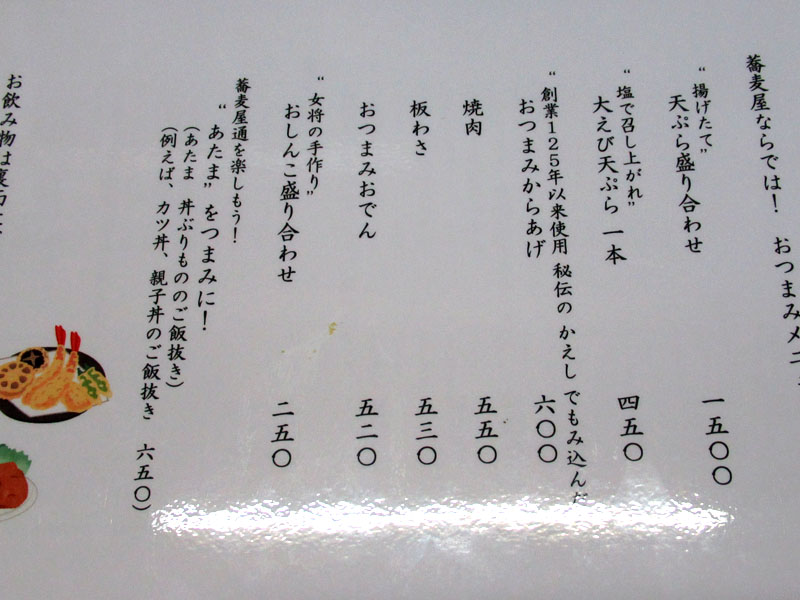 蕎麦屋ならでは！ おつまみメニ
“揚げたて”
天ぷら盛り合わせ 一五〇〇
“塩で召し上がれ”
大えび天ぷら 一本 四五〇
“創業125年以来使用 秘伝の かえし でもみ込んだ
おつまみからあげ 六〇〇
焼肉 五五〇
板わさ 五三〇
おつまみおでん 五二〇
“女将の手作り”
おしんこ盛り合わせ 二五〇
蕎麦屋通を楽しもう！
“あたま”をつまみに！
（あたま 丼ぶりもののご飯抜き）
（例えば、カツ丼、親子丼のご飯抜き 六五〇）
お飲み物は裏面